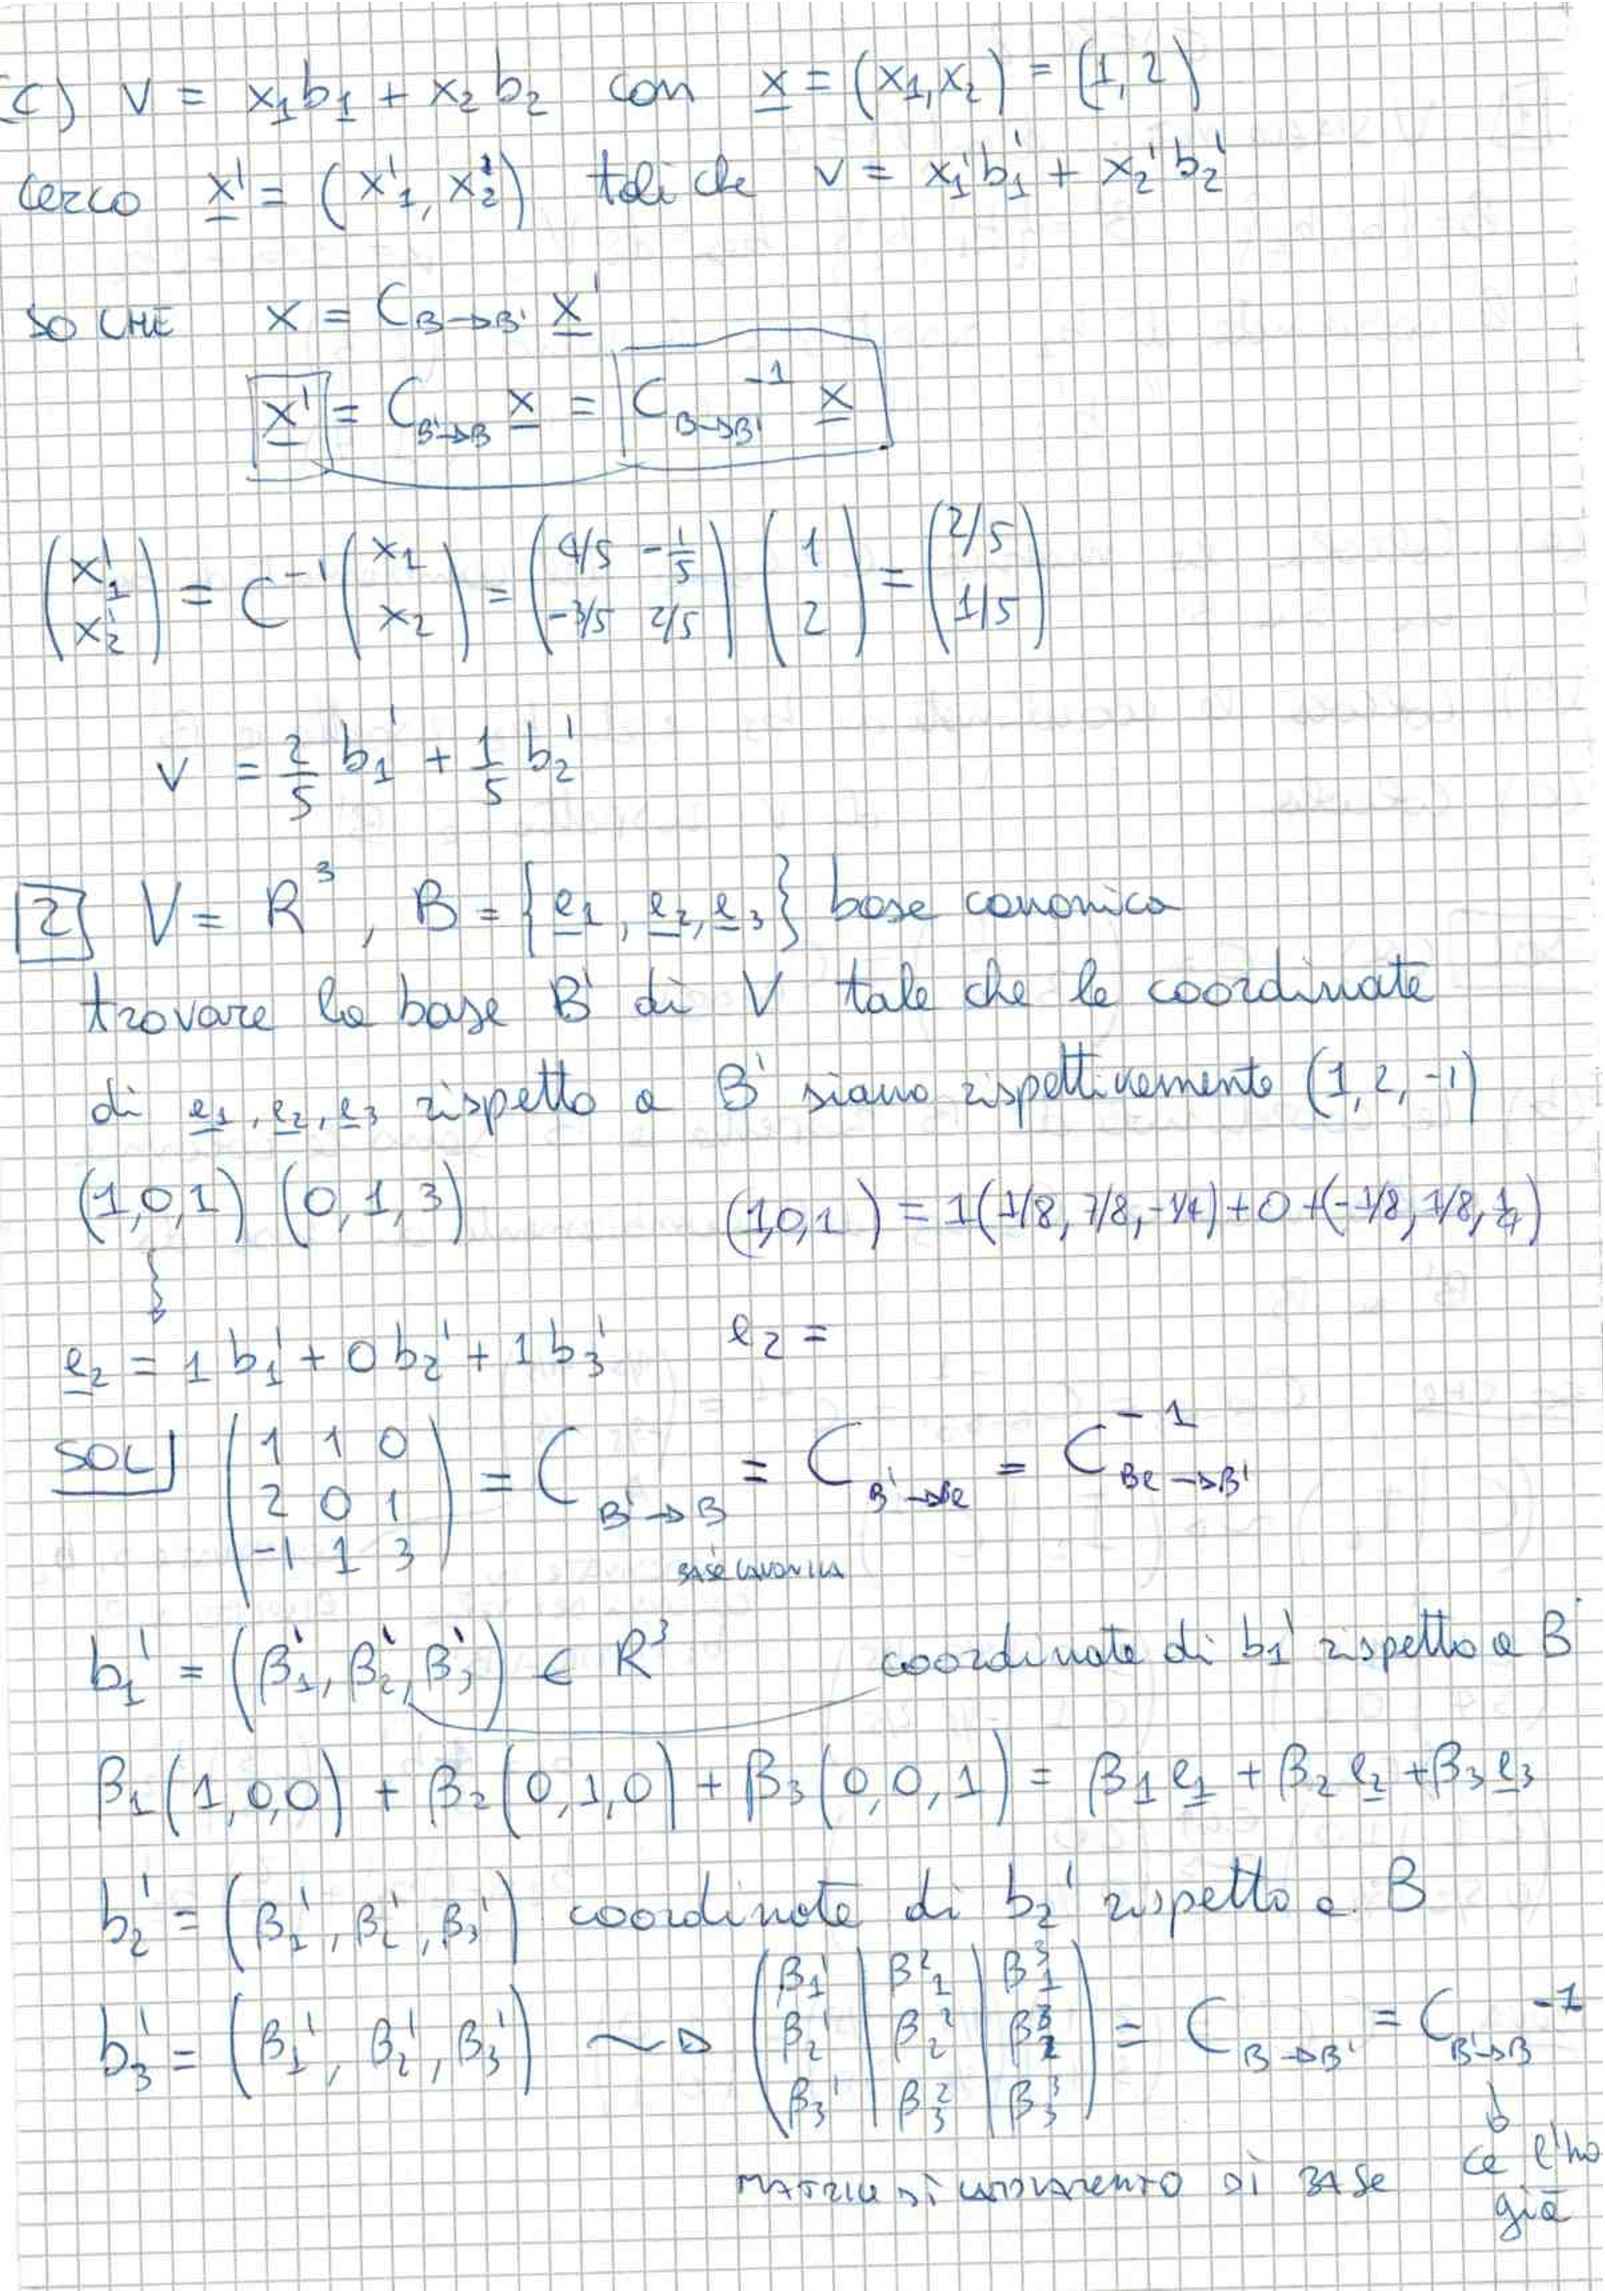 (C) v = x₁b₁ + x₂b₂ con x = (x₁,x₂) = (1,2)
cerco x' = (x'₁, x'₂) tali che v = x₁'b₁' + x₂'b₂'
SO CHE x = C_{B→B'} x'
x' = C_{B'→B} x = C_{B→B'}⁻¹ x
(x₁' x₂') = C⁻¹ (x₁ x₂) = (4/5 -1/5 -3/5 2/5) (1 2) = (2/5 1/5)
v = 2/5 b₁' + 1/5 b₂'
2 V = R³, B = {e₁, e₂, e₃} base canonica
trovare la base B' di V tale che le coordinate
di e₁, e₂, e₃ rispetto a B' siano rispettivamente (1,2,-1)
(1,0,1) (0,1,3) (1,0,1) = 1(1/8, 7/8, -1/4) + 0 + (-1/8, 1/8, 1/4)
e₂ = 1 b₁' + 0 b₂' + 1 b₃' e₂ =
SOL (1 1 0 2 0 1 -1 1 3) = C_{B'→B} = C_{B'→Be} = C⁻¹_{Be→B'}
BASE CANONICA
b₁' = (β₁', β₂', β₃') ∈ R³ coordinate di b₁' rispetto a B
β₁(1,0,0) + β₂(0,1,0) + β₃(0,0,1) = β₁e₁ + β₂e₂ + β₃e₃
b₂' = (β₁', β₂', β₃') coordinate di b₂' rispetto a B
b₃' = (β₁', β₂', β₃') ~> (β₁' | β²₁ | β³₁ β₂' | β₂² | β³₂ β₃' | β²₃ | β³₃) = C_{B→B'} = C_{B'→B}⁻¹
MATRICE DI CAMBIAMENTO DI BASE ce l'ho
già